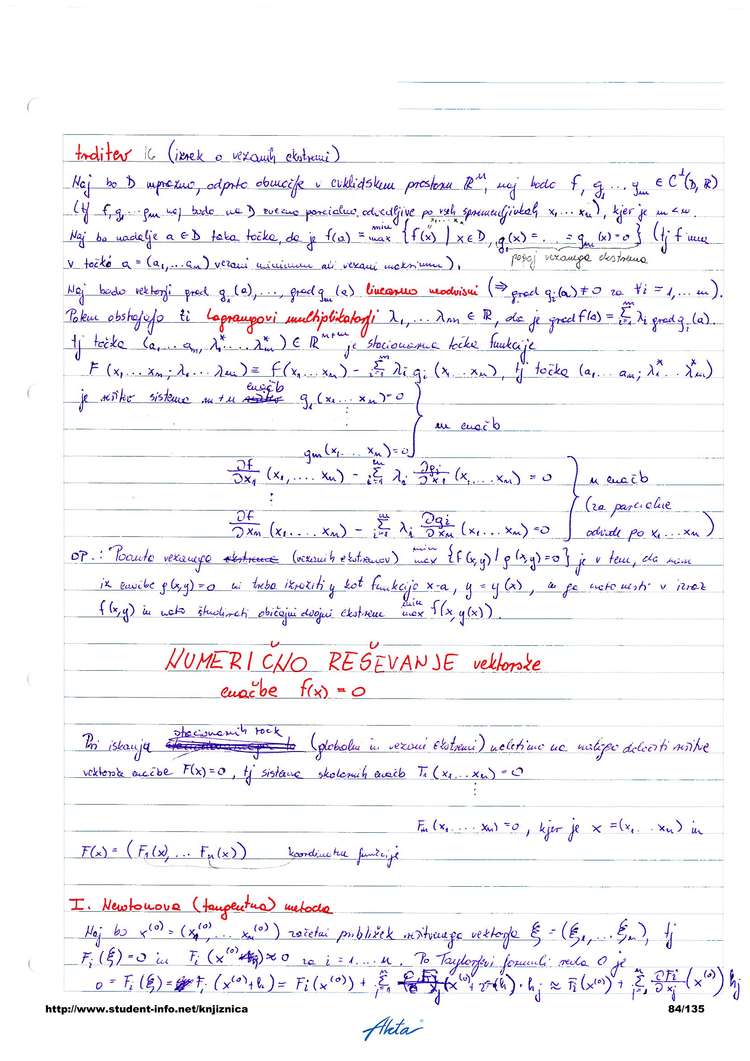 trditev 16 (izrek o vezanih ekstremi)
Naj bo D neprazno, odprto območje v evklidskem prostoru ℝⁿ, naj bodo f, g₁ ... gₘ ∈ C¹(D, ℝ)
(tj f, g₁ ... gₘ naj bodo na D zvezno parcialno odvedljive po vseh spremenljivkah x₁ ... xₙ), kjer je m < n.
Naj bo nadalje a ∈ D taka točka, da je f(a) = min max {f(x) | x ∈ D, g₁(x) = ... = gₘ(x) = 0} (tj f ima
v točki a = (a₁, ... aₙ) vezani minimum ali vezani maksimum). pogoj vezanega ekstrema
Naj bodo vektorji grad g₁(a), ..., grad gₘ(a) linearno neodvisni (⇒ grad gᵢ(a) ≠ 0 za ∀i = 1, ... m).
Potem obstajajo ti Lagrangovi multiplikatorji λ₁, ... λₘ ∈ ℝ, da je grad f(a) = Σᵢ₌₁ᵐ λᵢ grad gᵢ(a).
tj točka (a₁ ... aₙ, λ₁* ... λₘ*) ∈ ℝⁿ⁺ᵐ je stacionarna točka funkcije
F(x₁ ... xₙ; λ₁ ... λₘ) ≡ f(x₁ ... xₙ) − Σᵢ₌₁ᵐ λᵢ gᵢ(x₁ ... xₙ), tj točka (a₁ ... aₙ; λ₁* ... λₘ*)
je rešitev sistema m+n enačb g₁(x₁ ... xₙ) = 0
⋮ m enačb
gₘ(x₁ ... xₙ) = 0
∂f/∂x₁ (x₁, ... xₙ) − Σᵢ₌₁ᵐ λᵢ ∂gᵢ/∂x₁ (x₁ ... xₙ) = 0 n enačb
⋮ (za parcialne
∂f/∂xₙ (x₁ ... xₙ) − Σᵢ₌₁ᵐ λᵢ ∂gᵢ/∂xₙ (x₁ ... xₙ) = 0 odvode po x₁ ... xₙ)
OP.: Poanta vezanega (vezanih ekstremov) min max {f(x,y) | g(x,y) = 0} je v tem, da nam
iz enačbe g(x,y) = 0 ni treba izraziti y kot funkcijo x-a, y = y(x), in ga nato nesti v izraz
f(x,y) in nato študirati običajni dvojni ekstrem min max f(x, y(x)).
NUMERIČNO REŠEVANJE vektorske
enačbe f(x) = 0
Pri iskanju stacionarnih točk (globalni in vezani ekstremi) naletimo na nalogo določiti rešitve
vektorske enačbe F(x) = 0, tj sistema skalarnih enačb F₁(x₁ ... xₙ) = 0
⋮
Fₙ(x₁ ... xₙ) = 0, kjer je x = (x₁ ... xₙ) in
F(x) = (F₁(x), ... Fₙ(x)) koordinatne funkcije
I. Newtonova (tangentna) metoda
Naj bo x⁽⁰⁾ = (x₁⁽⁰⁾, ... xₙ⁽⁰⁾) začetni približek rešitvenega vektorja ξ = (ξ₁, ... ξₙ), tj
Fᵢ(ξ) = 0 in Fᵢ(x⁽⁰⁾) ≈ 0 za i = 1 ... n. Po Taylorjevi formuli reda 0 je
0 = Fᵢ(ξ) = Fᵢ(x⁽⁰⁾+h) = Fᵢ(x⁽⁰⁾) + Σⱼ₌₁ⁿ ∂Fᵢ/∂xⱼ (x⁽⁰⁾ + h) · hⱼ ≈ Fᵢ(x⁽⁰⁾) + Σⱼ₌₁ⁿ ∂Fᵢ/∂xⱼ (x⁽⁰⁾) hⱼ
http://www.student-info.net/knjiznica 84/135
Akta